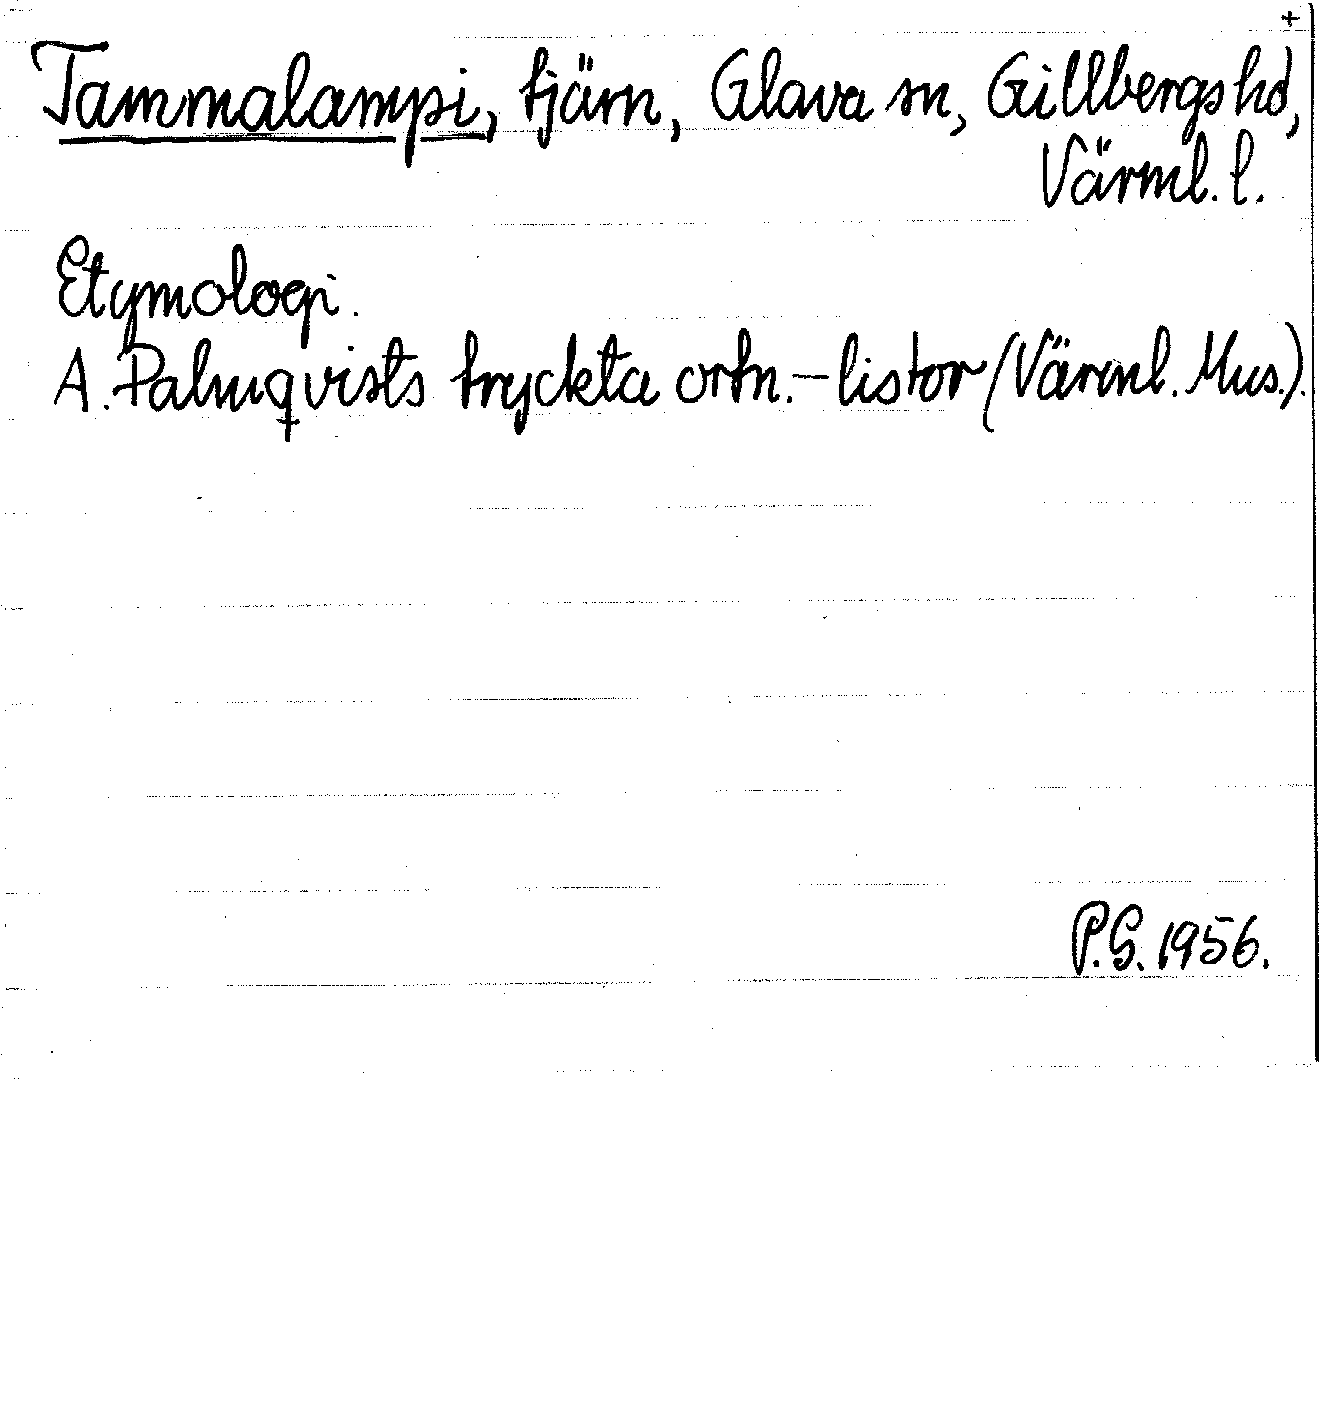 +
Tammalampi, tjärn, Glava sn, Gillbergs hd,
Värml. l.
Etymologi.
A. Palmqvists tryckta ortn.-listor (Värml. Mus.).
P.G. 1956.